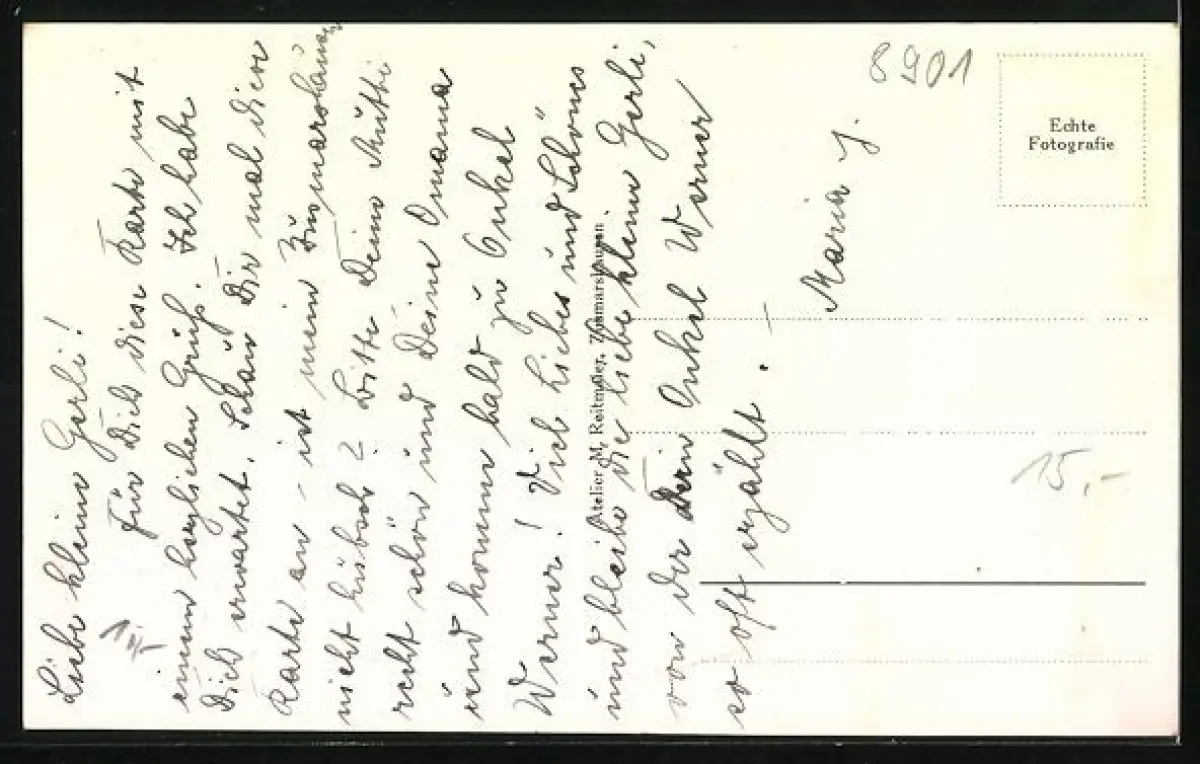 Liebe kleine Gerli!
Für Dich diese Karte mit
einem herzlichen Gruß. Ich habe
Dich erwartet. Schau Dir mal diese
Karte an - ist mein Zusmarshausen
nicht hübsch? Bitte Deine Mutti
recht schön und Deine Omama
und komm bald zu Onkel
Werner! Viel Liebes und Schönes
und bleibe die liebe kleine Gerli,
von der Dein Onkel Werner
so oft erzählt. –
Maria J.
Atelier M. Reitmder, Zusmarshausen
8901
Echte
Fotografie
15,-